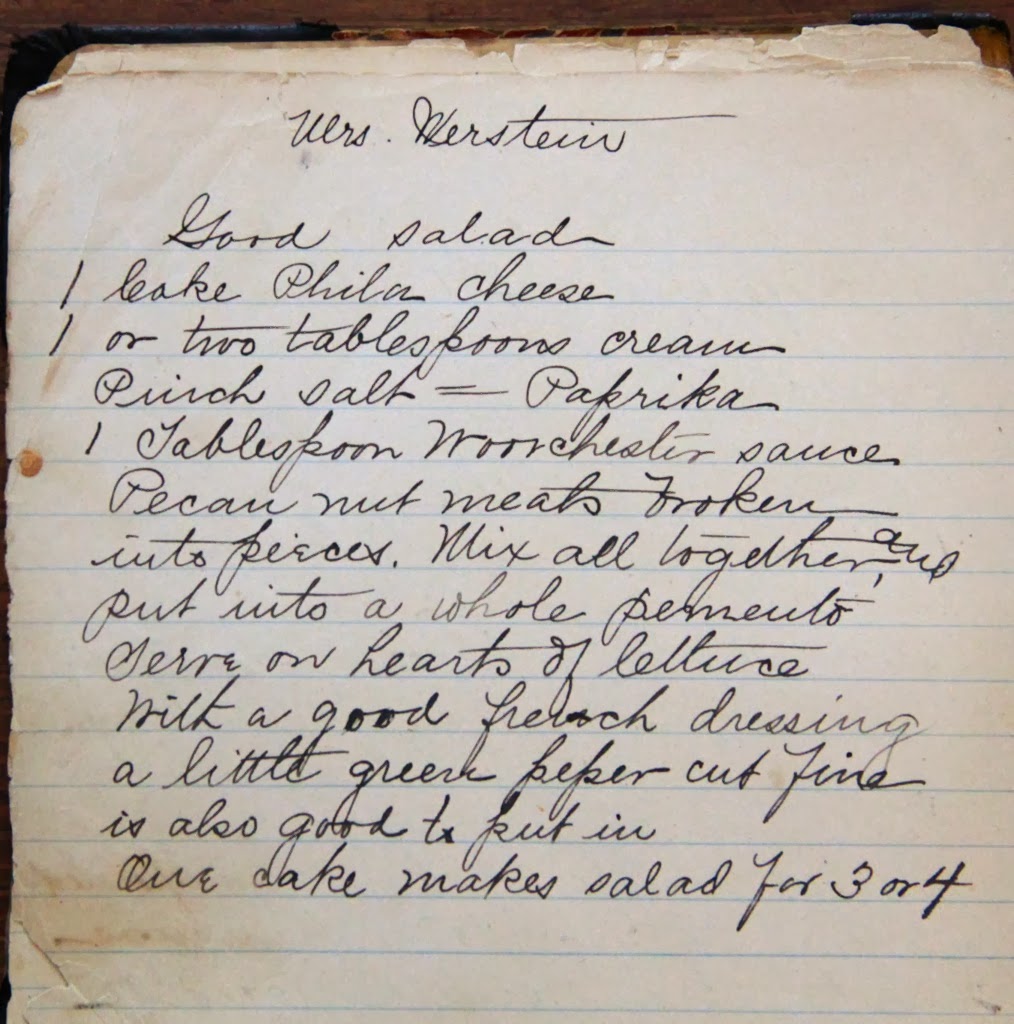 Mrs. Werstein
Good salad
1 Cake Phila cheese
1 or two tablespoons cream
Pinch salt = Paprika
1 Tablespoon Woorchester sauce
Pecan nut meats broken
into pieces. Mix all together, and
put into a whole pemento
Serve on hearts of lettuce
With a good french dressing
a little green peper cut fine
is also good to put in
One cake makes salad for 3 or 4